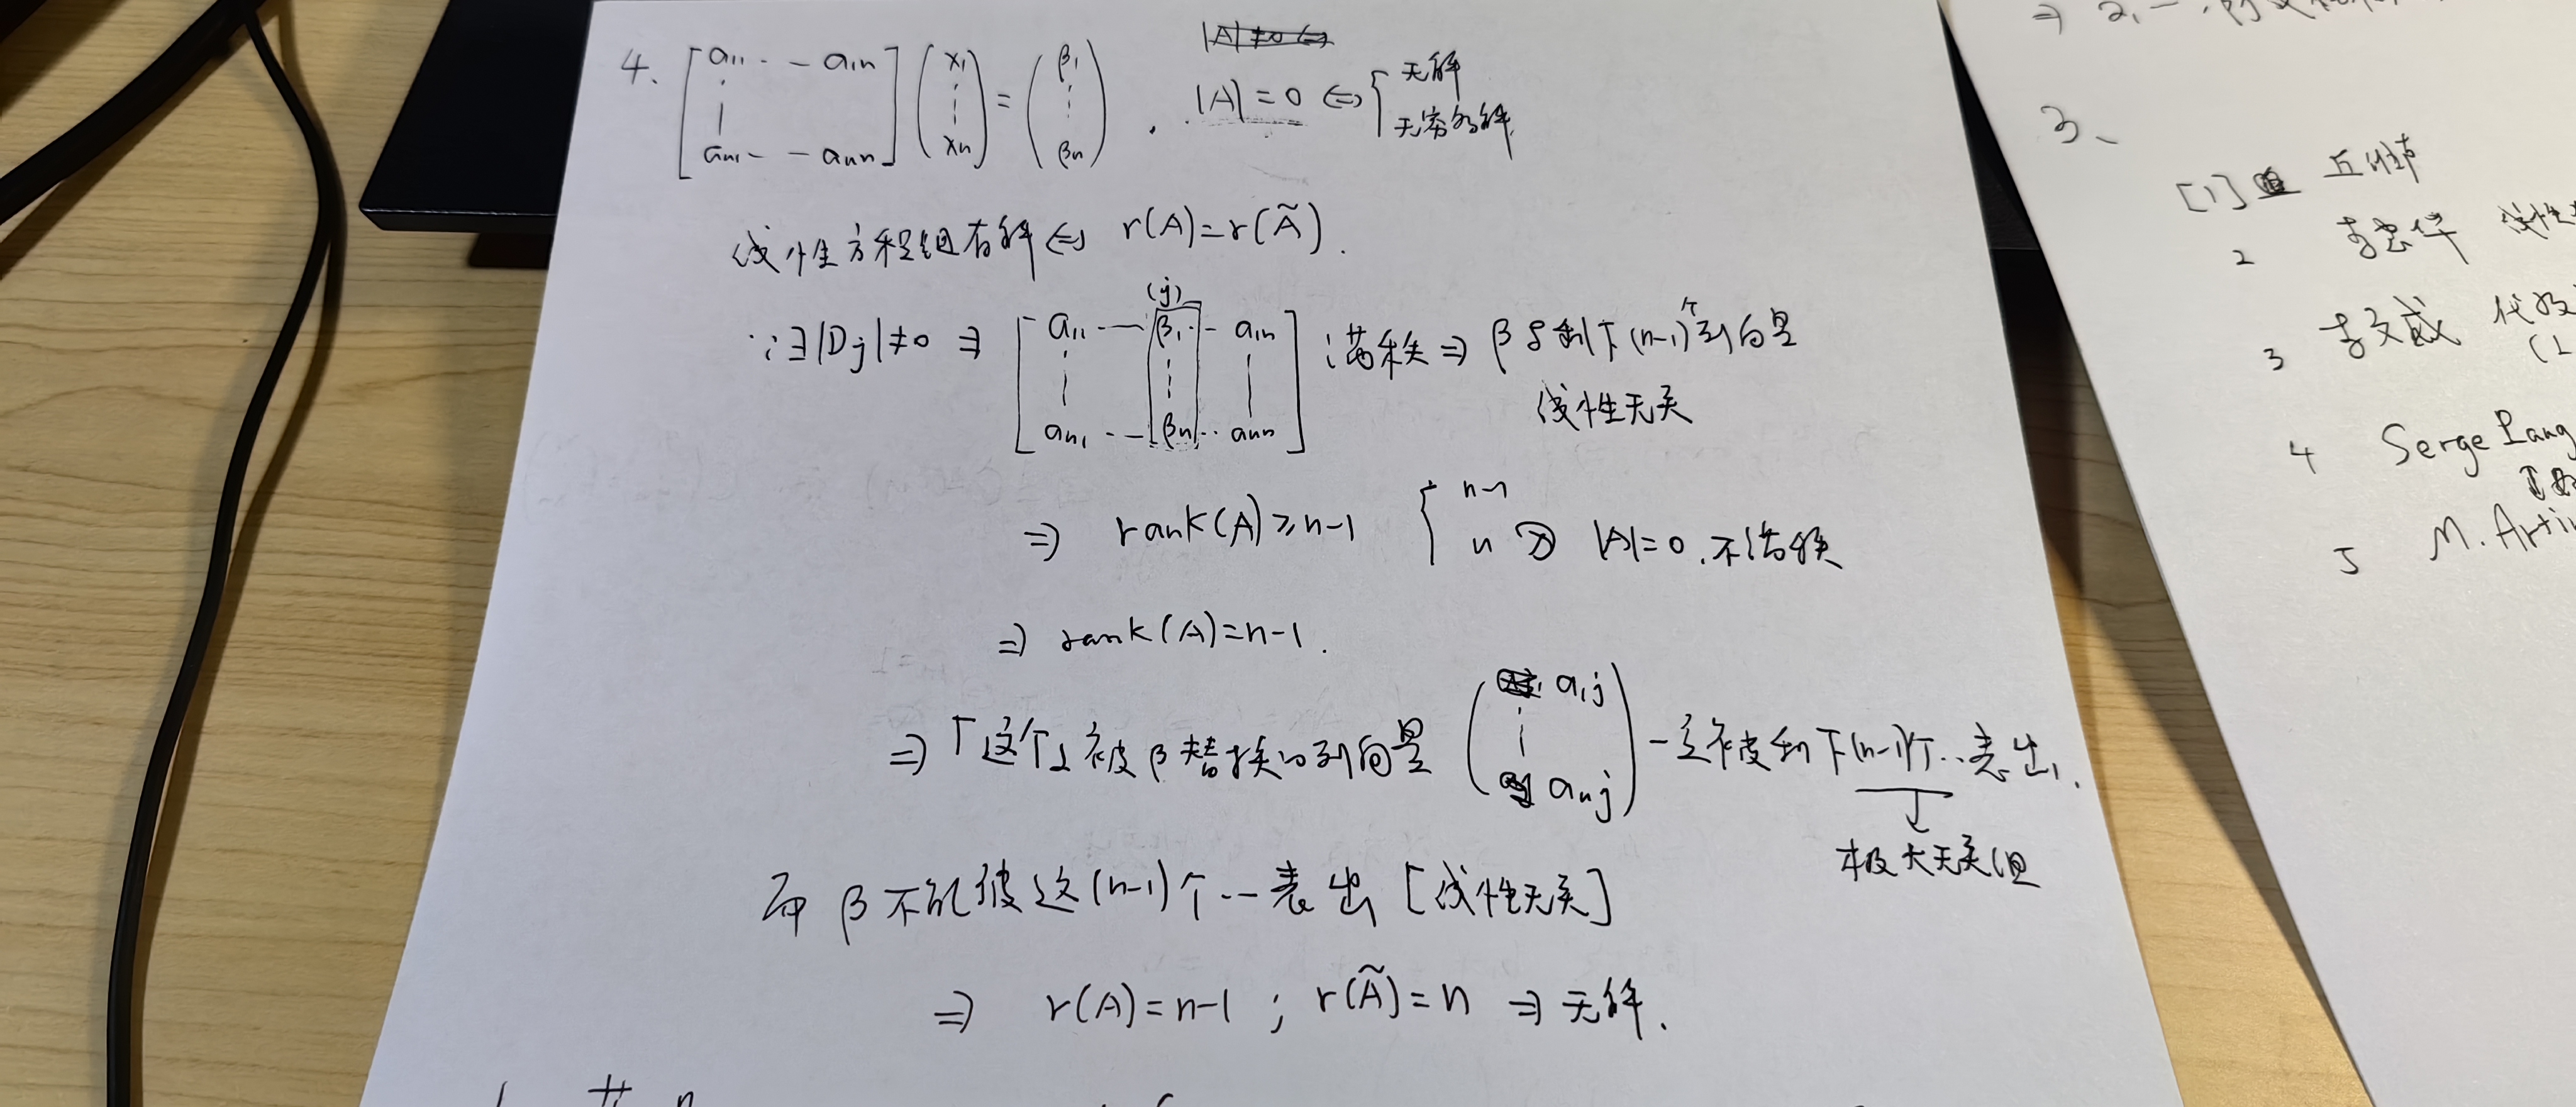 |A|≠0 ⇔
4. [a11 -- a1n ⋮ an1 -- ann] (x1 ⋮ xn) = (β1 ⋮ βn) . |A|=0 ⇔ { 无解 无穷多解.
线性方程组有解 ⇔ r(A)=r(Ã).
(j)
∵∃|Dj|≠0 ⇒ [a11 -- β1 -- a1n ⋮ an1 -- βn -- ann] 满秩 ⇒ β与剩下(n-1)个列向量
线性无关
⇒ rank(A)≥n-1 { n-1 n |A|=0.不满秩
⇒ rank(A)=n-1.
⇒「这个」被β替换的列向量 (a1j ⋮ anj) 一定被剩下(n-1)个...表出.
极大无关组
而β不能被这(n-1)个...表出 [线性无关]
⇒ r(A)=n-1 ; r(Ã)=n ⇒ 无解.
3、
[1] 丘维声
2 李
3 李文威 代数
4 Serge Lang
5 M. Artin